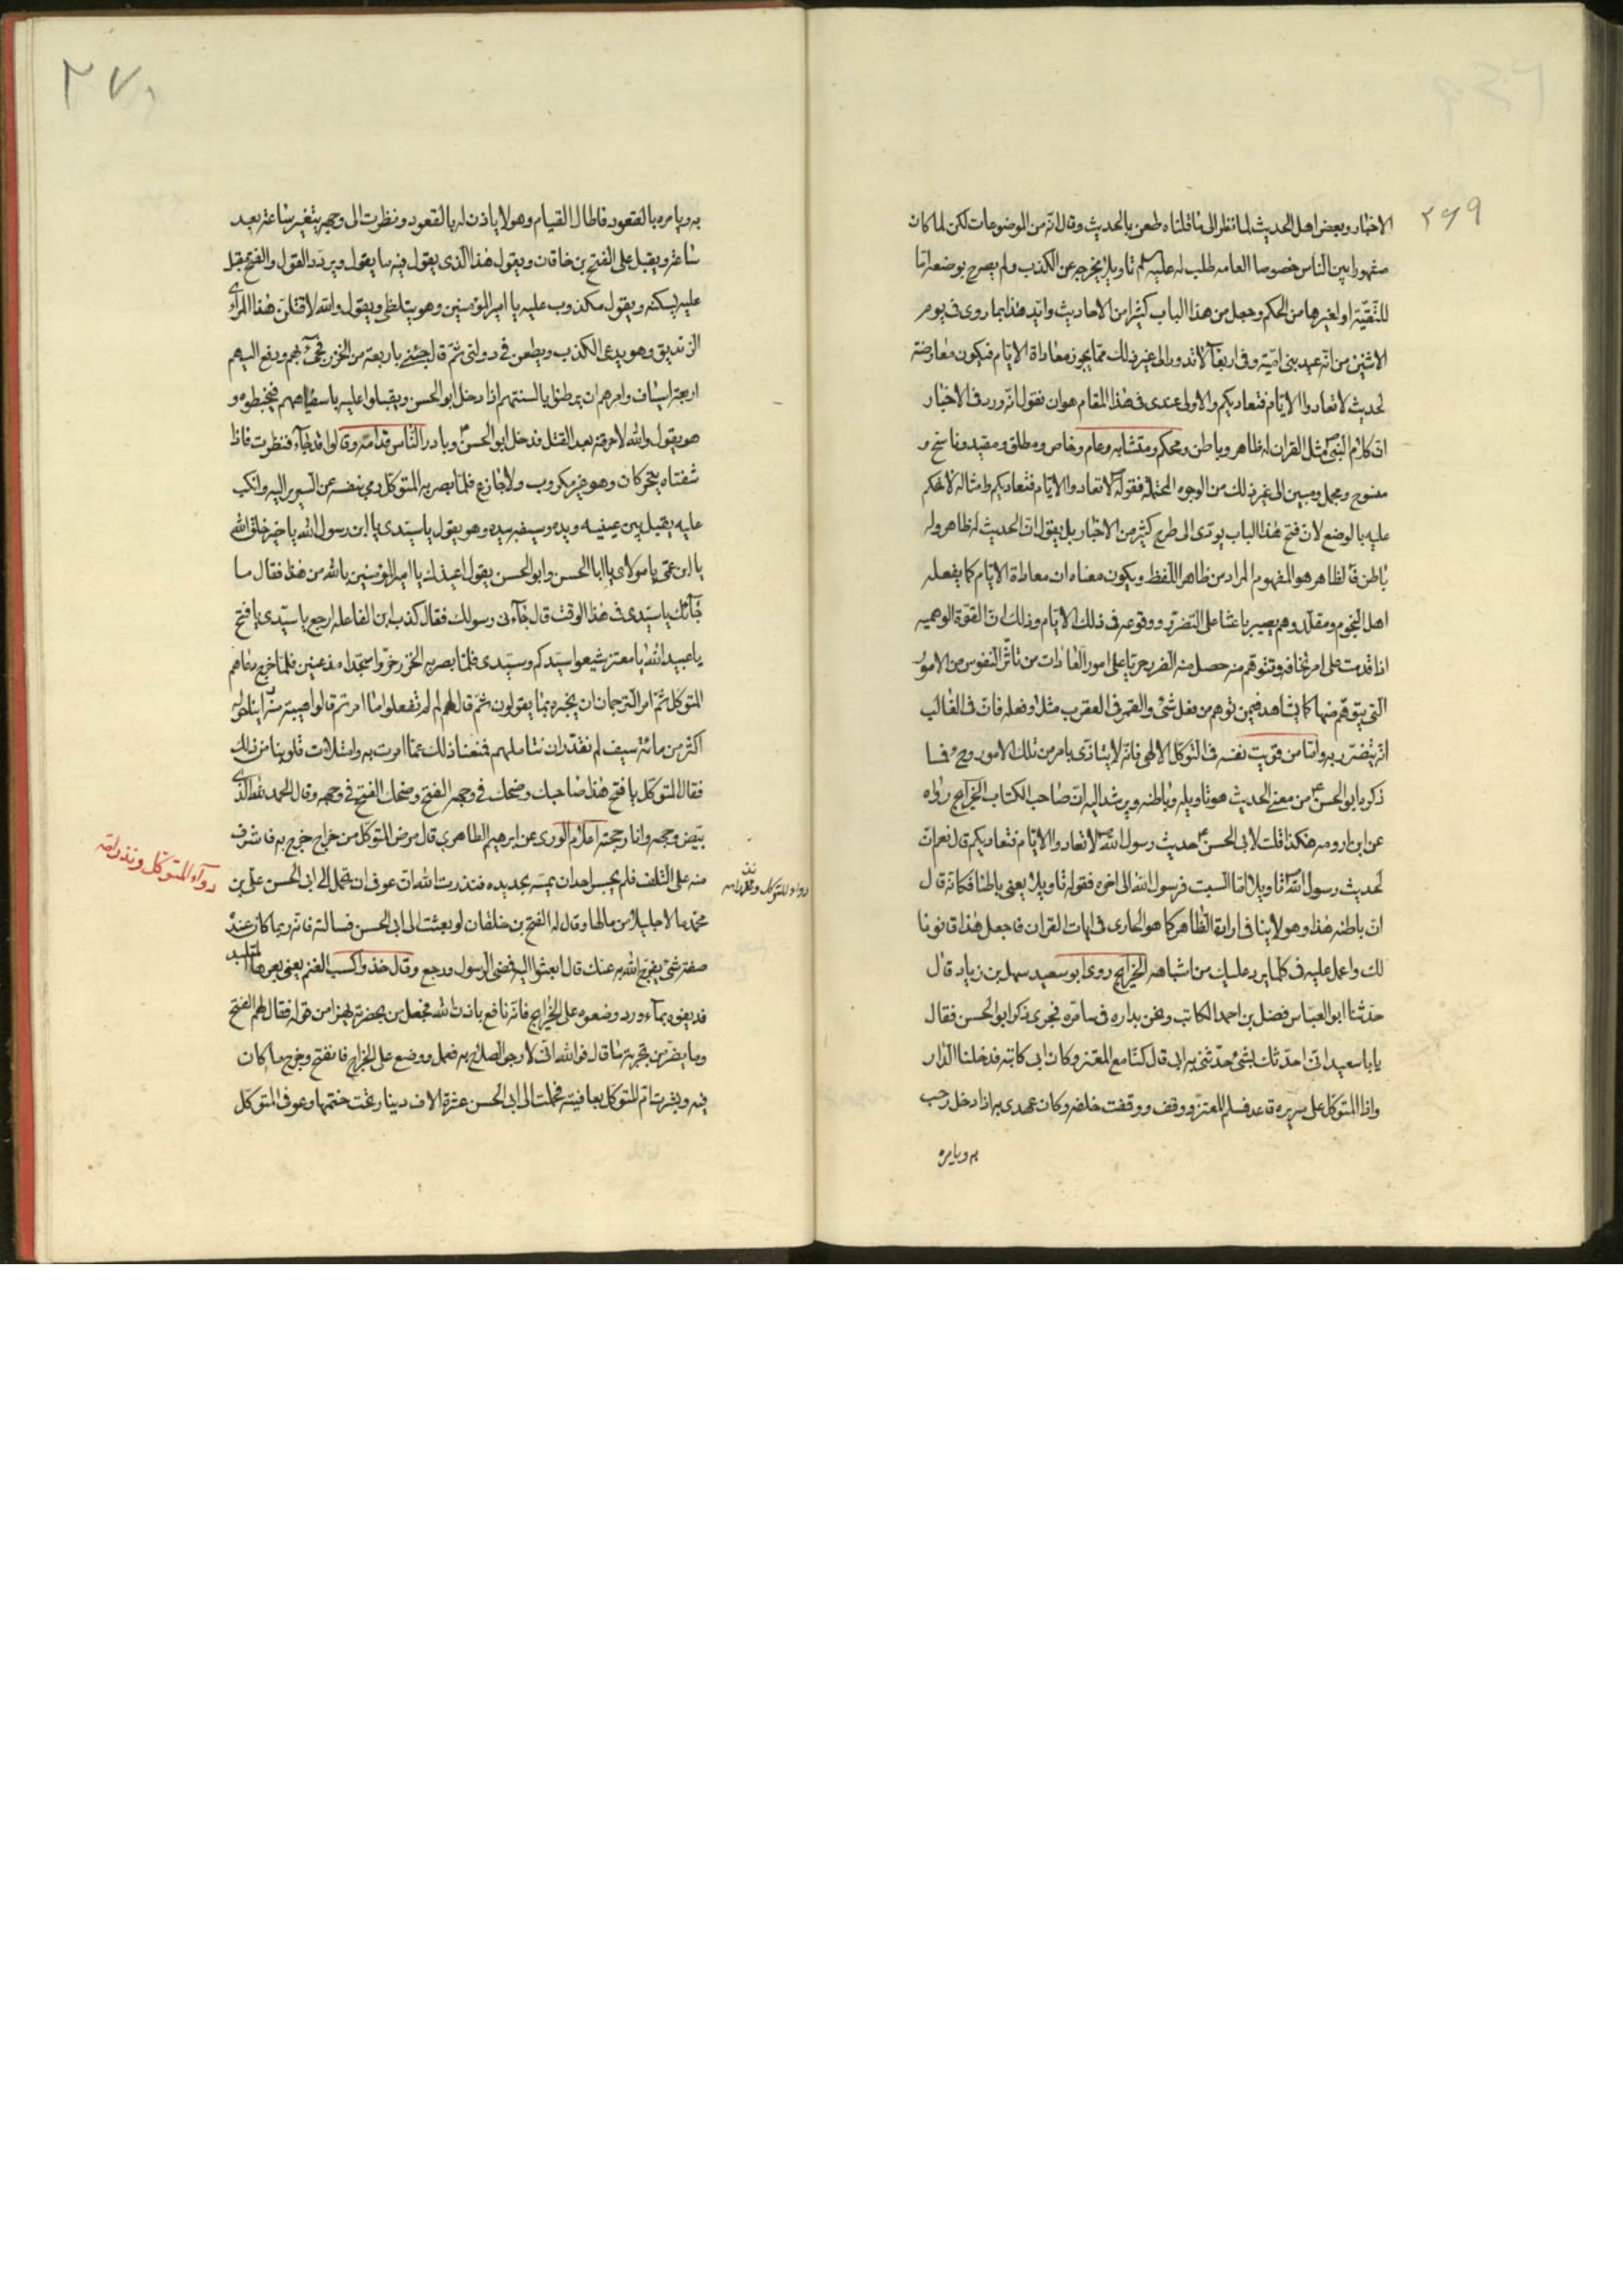 ٢٦٩
الاخبار وبعض اهل الحديث لما نظر الى ما قلناه طعن بالحديث وقال انه من الموضوعات لكن لما كان
مشهورا بين الناس خصوصا العامه طلب له عليه تاويلا يخرجه عن الكذب ولم يصرح بوضعه اما
للتقية او لغيرها من الحكم وجعل من هذا الباب كثيرا من الاحاديث وايد هذا بما روى فى يوم
الاثنين من انه عيد بنى امية وفى اربعاء لا تدور الى غير ذلك مما يجوز معاداة الايام فيكون معارضة
لحديث لا تعادوا الايام فتعاديكم والاولى عندى فى هذا المقام هو ان نقول انه ورد فى الاخبار
ان كلام النبى مثل القران له ظاهر وباطن ومحكم ومتشابه وعام وخاص ومطلق ومقيد وناسخ و
منسوخ ومجمل ومبين الى غير ذلك من الوجوه المحتملة فقوله لا تعادوا الايام فتعاديكم وامثاله لا نحكم
عليه بالوضع لان فتح هذا الباب يودى الى طرح كثير من الاخبار بل يقول ان الحديث له ظاهر وله
باطن فالظاهر هو المفهوم المراد من ظاهر اللفظ ويكون معناه ان معاداة الايام كما يفعله
اهل النجوم ومقلدوهم يصير باعثا على التضرر ووقوعه فى ذلك الايام وذلك ان القوة الوهميه
اذا قدمت على امر تخافه وتتوهم منه حصل منه الضرر جريا على امور العادات من تاثر النفوس من الامور
التى يتوهم منها كما يشاهد فيمن توهم من فعل شئ والقمر فى العقرب مثلا وفعله فان فى الغالب
انه يتضرر به واما من قويت نفسه فى التوكل الالهى فانه لا يتاذى بامر من تلك الامور وح فما
ذكره ابو الحسن من معنى الحديث هو تاويله وباطنه ويرشد اليه ان صاحب الكتاب الخرايج رواه
عن ابن ارومه هكذا قلت لابى الحسن حديث رسول الله لا تعادوا الايام فتعاديكم قال نعم ان
لحديث رسول الله تاويلا اما السبت فرسول الله الى اخره فقوله تاويلا يعنى باطنا فكانه قال
ان باطنه هذا وهو لا ينافى ارادة الظاهر كما هو الجارى فى ايات القران فاجعل هذا قانونا
لك واعمل عليه فى كلما يرد عليك من اشباهه الخرايج روى ابو سعيد سهل بن زياد قال
حدثنا ابو العباس فضل بن احمد الكاتب ونحن بداره فى سامره فجرى ذكر ابو الحسن فقال
يابا سعيد انى احدثك بشئ حدثنى به ابى قال كنا مع المعتز وكان ابى كاتبه فدخلنا الدار
واذا المتوكل على سريره قاعد فسلم المعتز ووقف ووقفت خلفه وكان عهدى به اذا دخل رحب
به ويامره
٢٧٠
به ويامره بالقعود فاطال القيام وهو لا ياذن له بالقعود ونظرت الى وجهه يتغير ساعة بعد
ساعة ويقبل على الفتح بن خاقان ويقول هذا الذى يقول فيه ما يقول ويردد القول والفتح مقبل
عليه يسكنه ويقول مكذوب عليه يا امير المؤمنين وهو يتلظى ويقول والله لاقتلن هذا المرائى
الزنديق وهو يدعى الكذب ويطعن فى دولتى ثم قال جئنى باربعة من الخزر فجئ بهم ودفع اليهم
اربعة اسياف وامرهم ان يرطنوا بالسنتهم اذا دخل ابو الحسن ويقبلوا عليه باسيافهم فيخبطوه و
هو يقول والله لاحرقنه بعد القتل فدخل ابو الحسن وبادر الناس قدامه وقالوا قد جاء فنظرت فاذا
شفتاه يتحركان وهو غير مكروب ولا جازع فلما بصر به المتوكل رمى بنفسه عن السرير اليه وانكب
عليه يقبل بين عينيه ويده وسيفه بيده وهو يقول يا سيدى يا ابن رسول الله يا خير خلق الله
يا ابن عمى يا مولاى يا ابا الحسن وابو الحسن يقول اعيذك يا امير المؤمنين بالله من هذا فقال ما
جائك يا سيدى فى هذا الوقت قال جاءنى رسولك فقال كذب ابن الفاعله ارجع يا سيدى يا فتح
يا عبيد الله يا معتز شيعوا سيدكم وسيدى فلما بصر به الخزر خروا سجدا مذعنين فلما خرج دعاهم
المتوكل ثم امر الترجمان ان يخبره بما يقولون ثم قال لهم لم لم تفعلوا ما امرتم قالوا هيبته منه راينا حوله
اكثر من مائة سيف لم نقدر ان نتاملهم فمنعنا ذلك عما امرت به وامتلات قلوبنا من ذلك
فقال المتوكل يا فتح هذا صاحبك وضحك فى وجهه الفتح وضحك الفتح فى وجهه وقال الحمد لله الذى
بيض وجهه وانار حجته اعلام الورى عن ابرهيم الطاهرى قال مرض المتوكل من خراج خرج به فاشرف
منه على التلف فلم يجسر احد ان يمسه بحديده فنذرت امه ان عوفى ان تحمل الى ابى الحسن على بن
محمد مالا جليلا من مالها وقال له الفتح بن خاقان لو بعثت الى ابى الحسن فسالته فانه ربما كان عنده
صفة شئ يفرج الله به عنك قال ابعثوا اليه فمضى الرسول ورجع وقال خذوا كسب الغنم يعنى بعرها المتلبد
فديفوه بماء ورد وضعوه على الخراج فانه نافع باذن الله فجعل من بحضرته يهزا من قوله فقال لهم الفتح
وما يضر من تجربة ما قال فوالله انى لارجو الصلاح به فعمل ووضع على الخراج فانفتح وخرج ما كان
فيه وبشرت ام المتوكل بعافيته فحملت الى ابى الحسن عشرة الاف دينار تحت ختمها وعوفى المتوكل
دواء للمتوكل ونذر امه
دواء للمتوكل ونذر امه